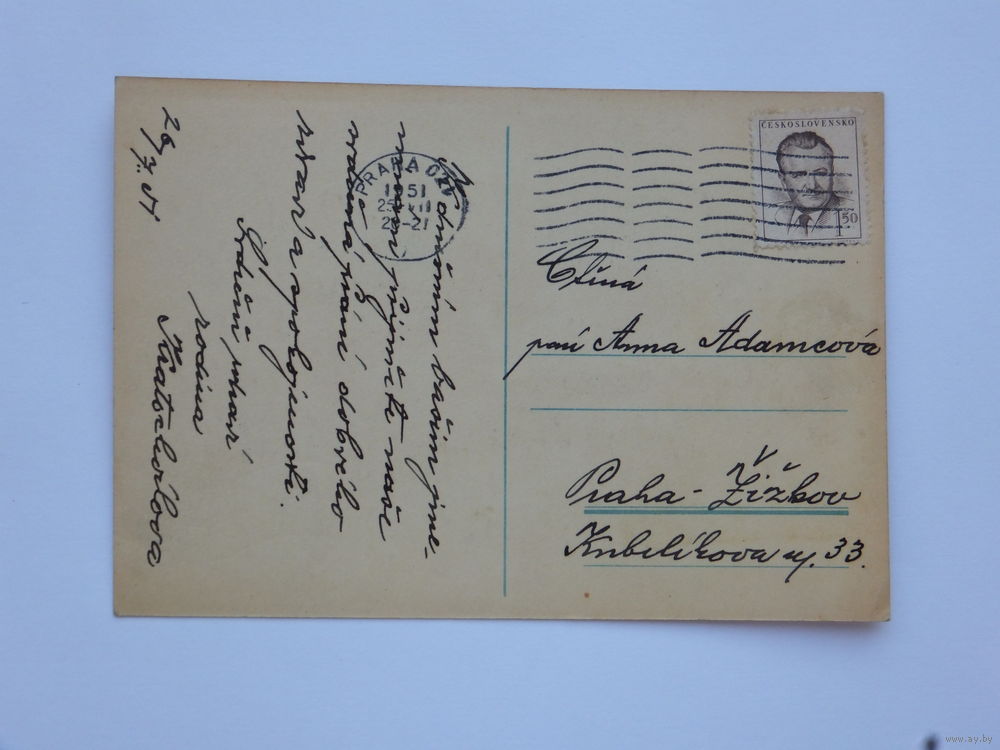 K dnešním Vašim jme-
ninám přijměte naše
srdečná přání dobrého
zdraví a spokojenosti.
Srdečně zdraví
rodina
Kratochvílova
26/7.51
PRAHA
1951
25.VII
-21
ČESKOSLOVENSKO
1.50
Ctěná
paní Anna Adamcová
Praha - Žižkov
Kubelíkova ul. 33.
www.ay.by